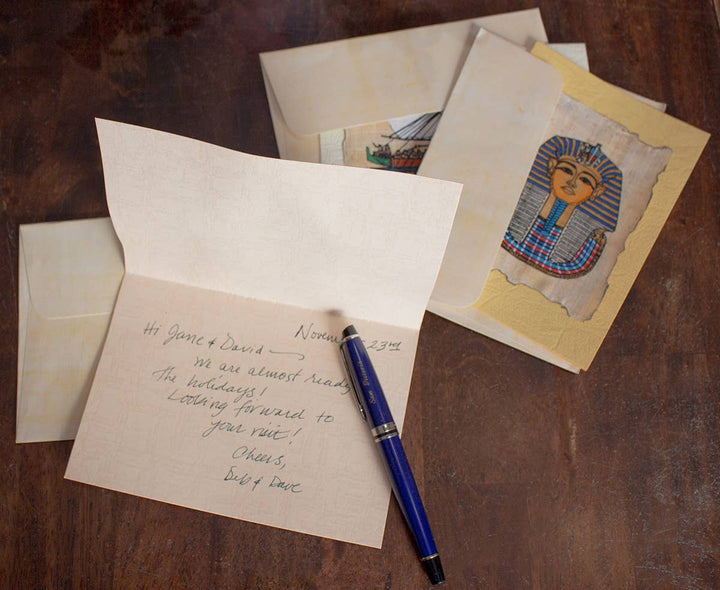 November 23rd
Hi Jane & David —
We are almost ready
the holidays!
Looking forward to
your visit!
Cheers,
Deb & Dave